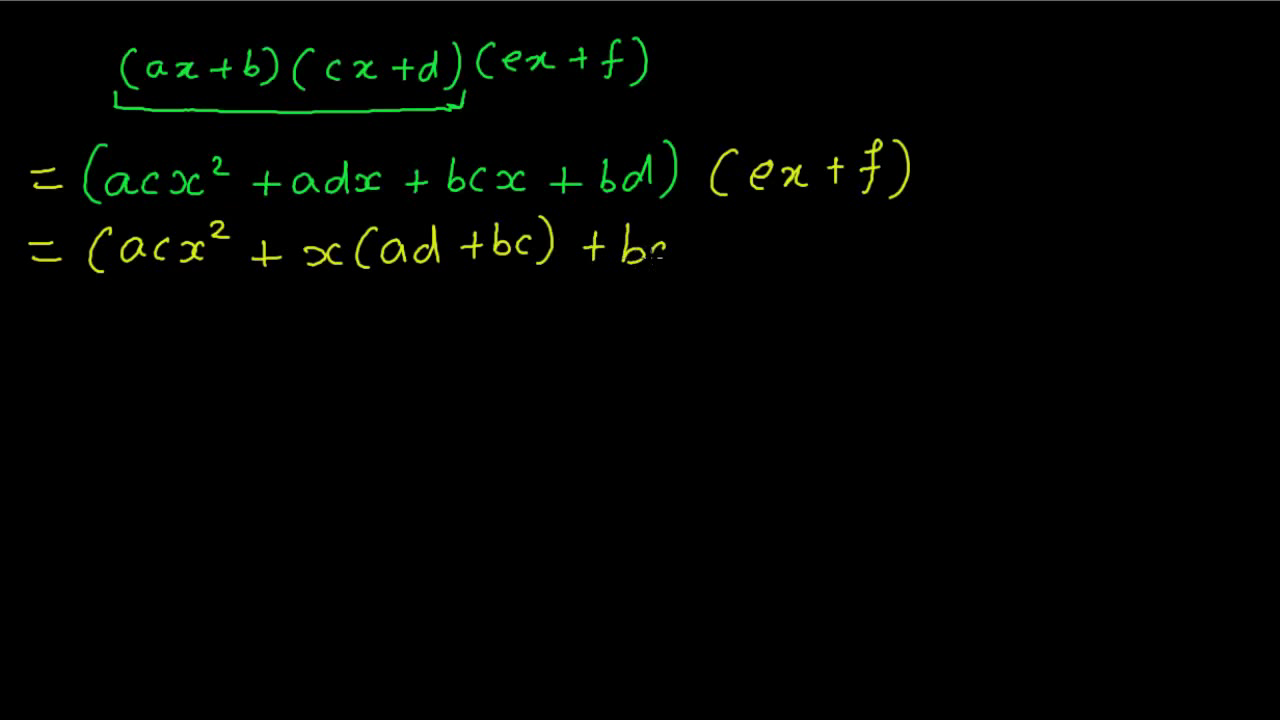 (ax+b)(cx+d)(ex+f)
=(acx²+adx+bcx+bd)(ex+f)
=(acx²+x(ad+bc)+b